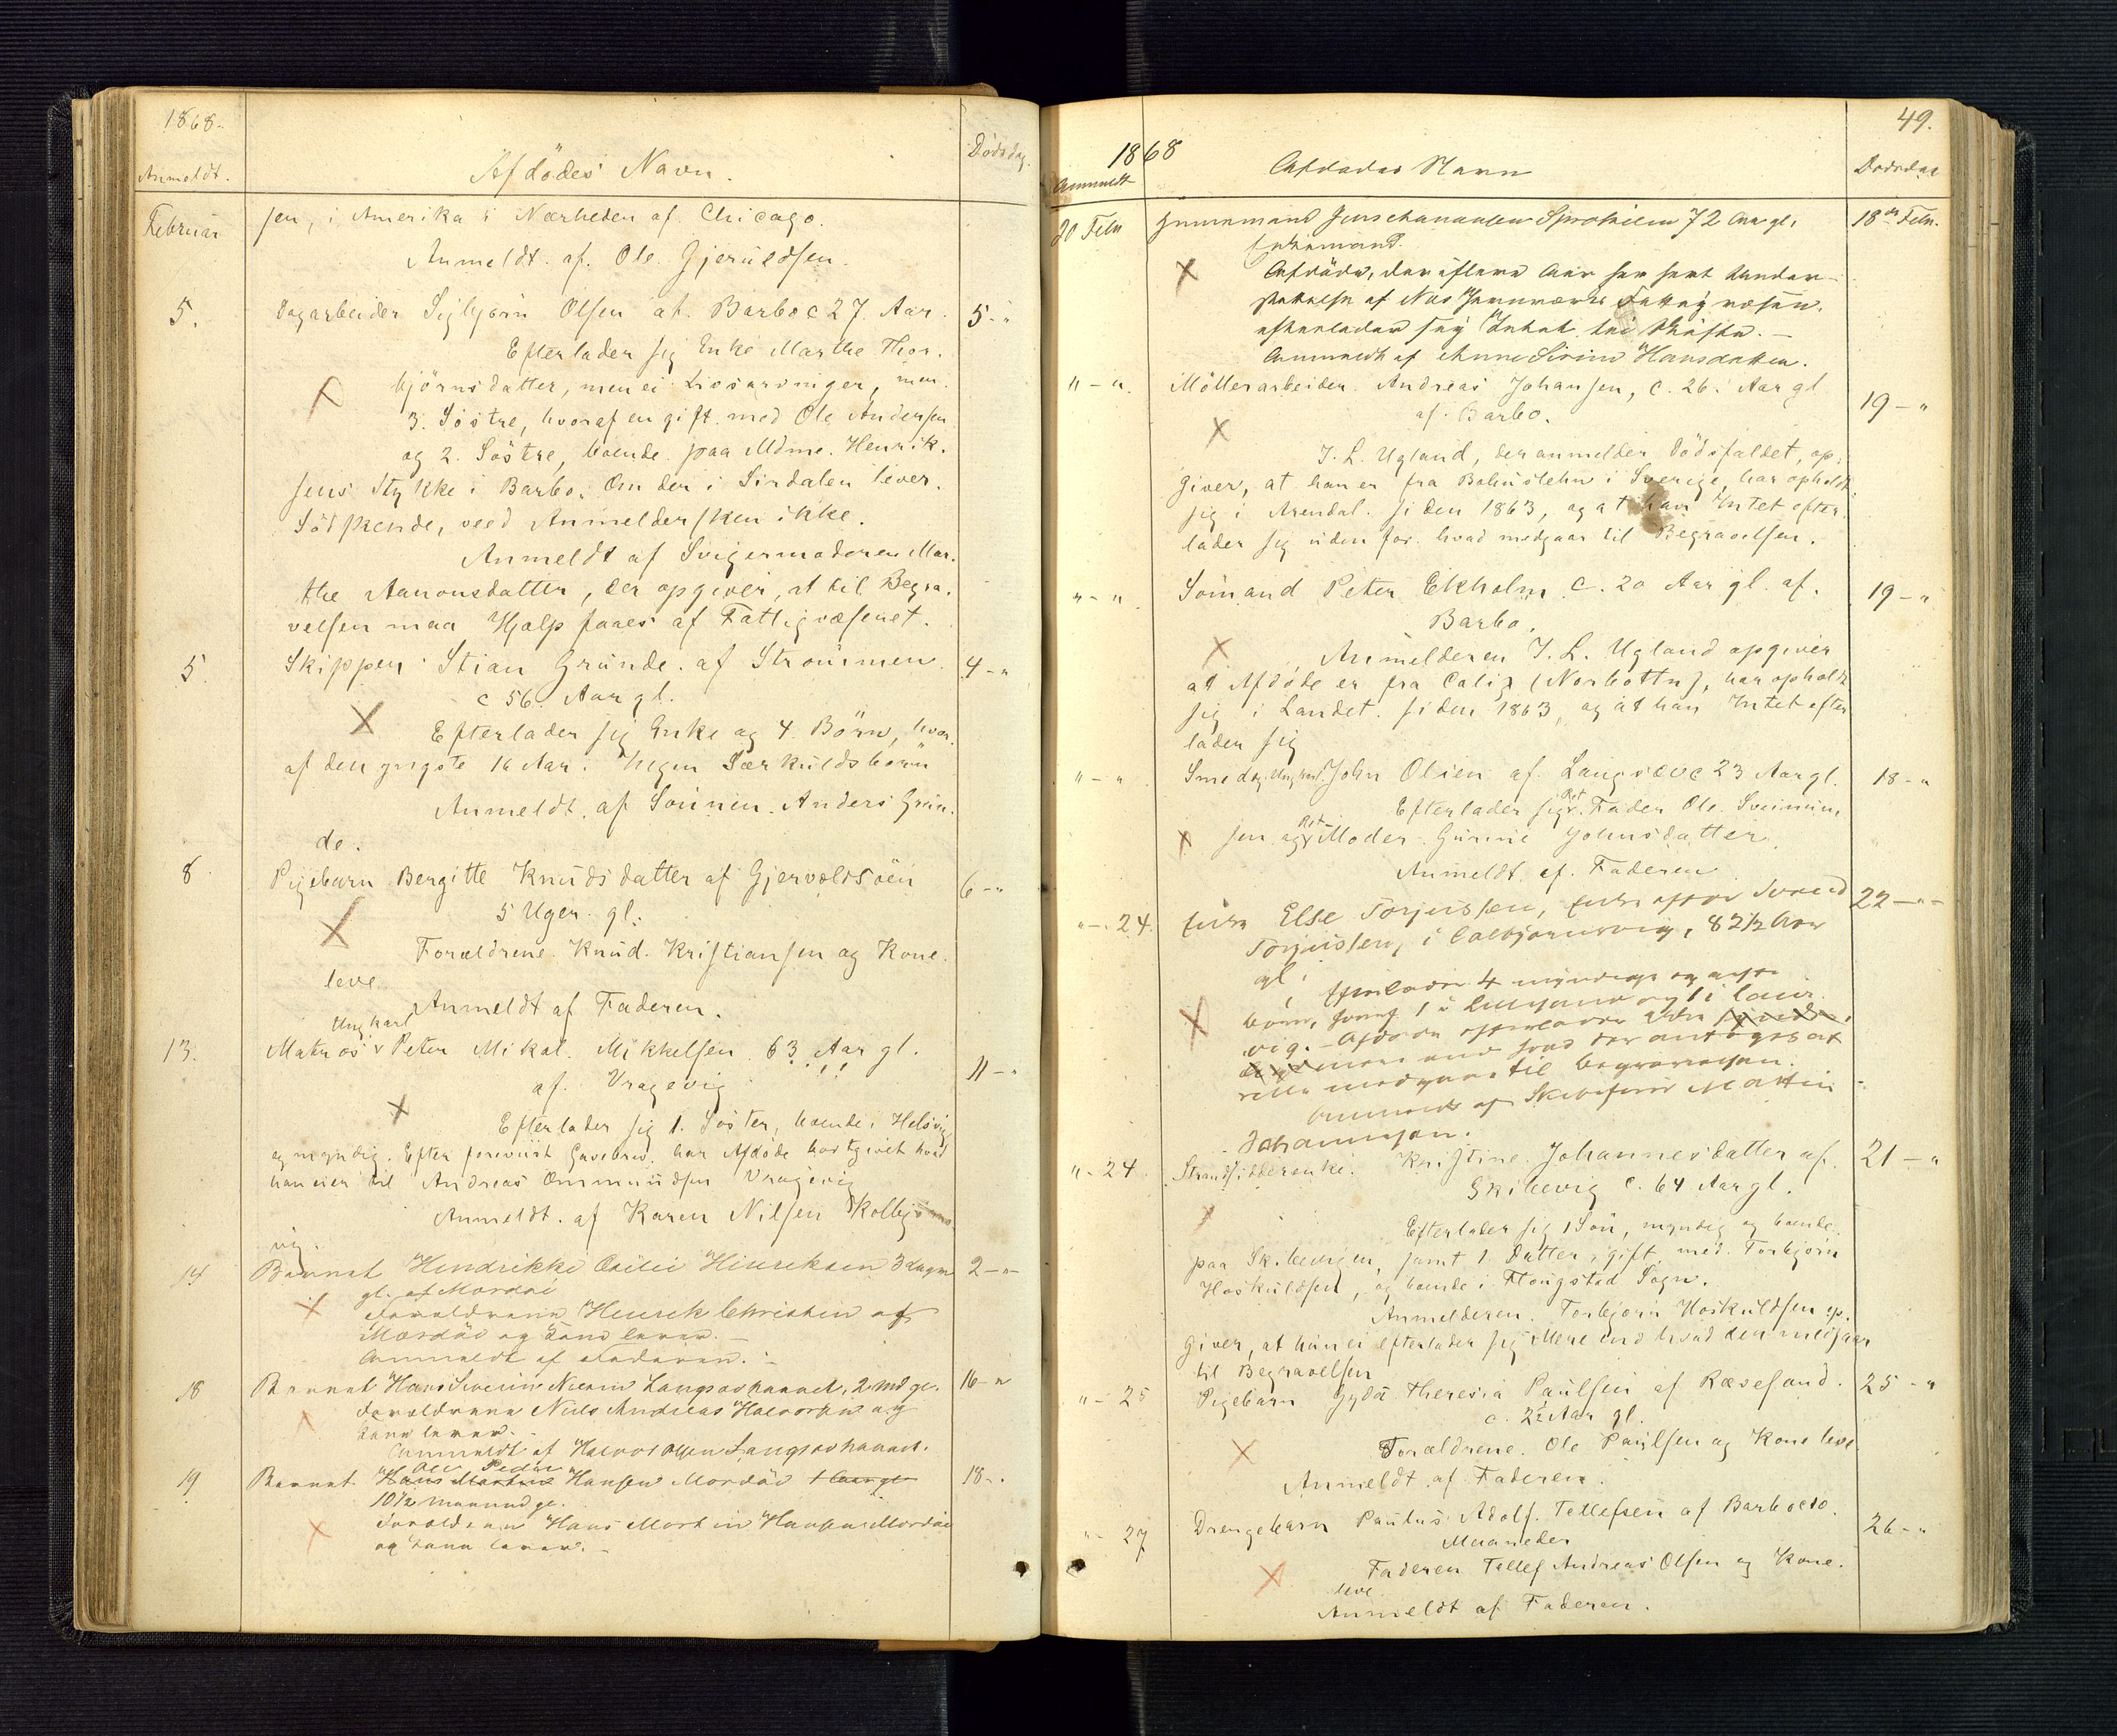 1868.
Anmeldt.
Afdödes Navn.
Dödsdag.
Februar
sen, i Amerika i Nærheden af Chicago.
Anmeldt af Ole Gjeruldsen.
5.
Dagarbeider Sigbjørn Olsen af Barbo c 27 Aar.
5 - "
Efterlader sig Enke Marthe Thor-
björnsdatter, men ei Livsarvinger, men
3 Söstre, hvoraf en gift med Ole Andersen
og 2 Söstre, boende paa Mdme. Henrik-
sens Stykke i Barbo. Om der i Sirdalen lever
Södskende, veed Anmeldersken ikke.
Anmeldt af Svigermoderen Mar-
the Aanonsdatter, der opgiver, at til Begra-
velsen maa Hjælp faaes af Fattigvæsenet.
5.
Skipper Stian Grunde af Strömmen
4 - "
c 56 Aar gl.
Efterlader sig Enke og 4 Börn, hvor-
af den yngste 16 Aar. Ingen Særkuldsbörn
Anmeldt af Sönnen Anders Grun-
de.
8
Pigebarn Bergitte Knudsdatter af Gjervoldsöen
6 - "
5 Uger gl.
Forældrene Knud Kristiansen og Kone
leve
Anmeldt af Faderen.
Ungkarl
13.
Matros Peter Mikal Mikkelsen 63 Aar gl.
11 - "
af Vragevig
Efterlader sig 1 Söster, boende i Helsvig
og myndig. Efter foreviist Gavebrev har Afdöde bortgivet hvad
han eier til Andreas Ommundsen Vragevig
Anmeldt af Karen Nilsen Kolbjörns-
vig.
14
Barnet Hendrikke Cecilie Hinriksen 3 dage
2 - "
gl. af Mærdöe
Forældrene Henrik Christen af
Mærdöe og Kone lever. -
Anmeldt af Faderen. -
18
Barnet Hans Severin Langsævhavnet, 2 Md gl.
16 - "
Forældrene Niels Andreas Halvorsen og
Kone lever.
Anmeldt af Halvor Olsen Langsævhavnet.
Ole Peder
19
Barnet Hans Martin Hansen Mærdöe
18 - "
10½ Maaned gl.
Forældrene Hans Martin Hansen Mærdöe
og Kone lever. -
49.
1868
Anmeldt
Afdødes Navn
Dødsdag
20 Febr
72 Aar gl.
18de Febr.
Enkemand.
Afdöde, der i flere Aar har havt Under-
støttelse af Næs Jernværks Fattigvæsen,
efterlader sig Intet til Skifte. -
Anmeldt af Anne Sirine Hansdatter.
" - "
Möllerarbeider Andreas Johansen, c. 26 Aar gl
19 - "
af Barbo.
J. L. Ugland, der anmelder Dödsfaldet, op-
giver, at han er fra Bohuslehn i Sverige, har opholdt
sig i Arendal siden 1863, og at han Intet efter-
lader sig uden for hvad medgaar til Begravelsen.
" - "
Sömand Peter Ekholm c. 20 Aar gl. af
19 - "
Barbo.
Anmelderen J. L. Ugland opgiver
at Afdöde er fra Calix (Norbottn), har opholdt
sig i Landet siden 1863, og at han Intet efter-
lader sig
" - "
Smed og Ungkarl John Olsen af Langsæv c 23 Aar gl.
18 - "
Efterlader sig Fader Ole Sveinun-
sen og Moder Gunnie Johnsdatter.
Anmeldt af Faderen
" - 24.
Enke Else Torjussen, Enke efter Svend
22 - "
Torjussen, i Colbjørnsvig, 82½ Aar
gl.
Efterlader 4 myndige og gifte
Börn, hvoraf 1 i og 1 i
vig. - Afdöde efterlader sig
mere end hvad der antages at
ville medgaae til Begravelsen.
Anmeldt af Skibsfører Martin
Johannesen.
" - 24
Strandsidderenke Kristine Johannesdatter af
21 - "
Skilbevig c. 64 Aar gl.
Efterlader sig 1 Sön, myndig og boende
paa Skilbevigen, samt 1 Datter, gift med Torbjörn
Hoskuldsen, og boende i Flougstad Sogn.
Anmelderen Torbjörn Hoskuldsen op-
giver, at hun ei efterlader sig Mere end hvad der medgaar
til Begravelsen
" - 25
Pigebarn Gyda Theresia Paulsen af Ræsesand.
25 - "
c. 2½ Aar gl.
Forældrene Ole Paulsen og Kone leve
Anmeldt af Faderen.
" - 27
Drengebarn Paulus Adolf Tellefsen af Barbo c 10
26 - "
Maaneder
Faderen Tellef Andreas Olsen og Kone
leve
Anmeldt af Faderen.